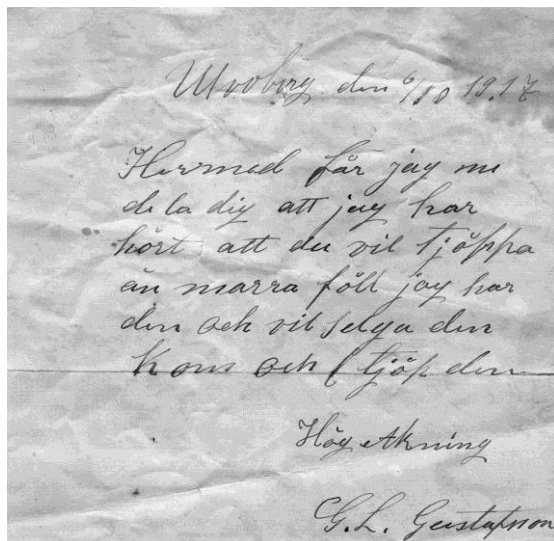 Ulvoberg den 6/10 1917
Hermed får jag me
dela dig att jag har
hört att du vil tjöppa
än marra föll jag har
den och vil selga den
kom och tjöp den
Hög Akning
G. L. Gustafsson